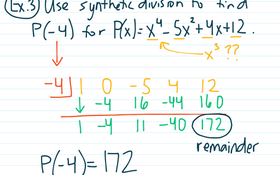 Ex.3) Use synthetic division to find
P(-4) for P(x)= x⁴ - 5x² + 4x + 12.
x³ ??
-4 | 1 0 -5 4 12
↓ -4 16 -44 160
1 -4 11 -40 172
remainder
P(-4) = 172